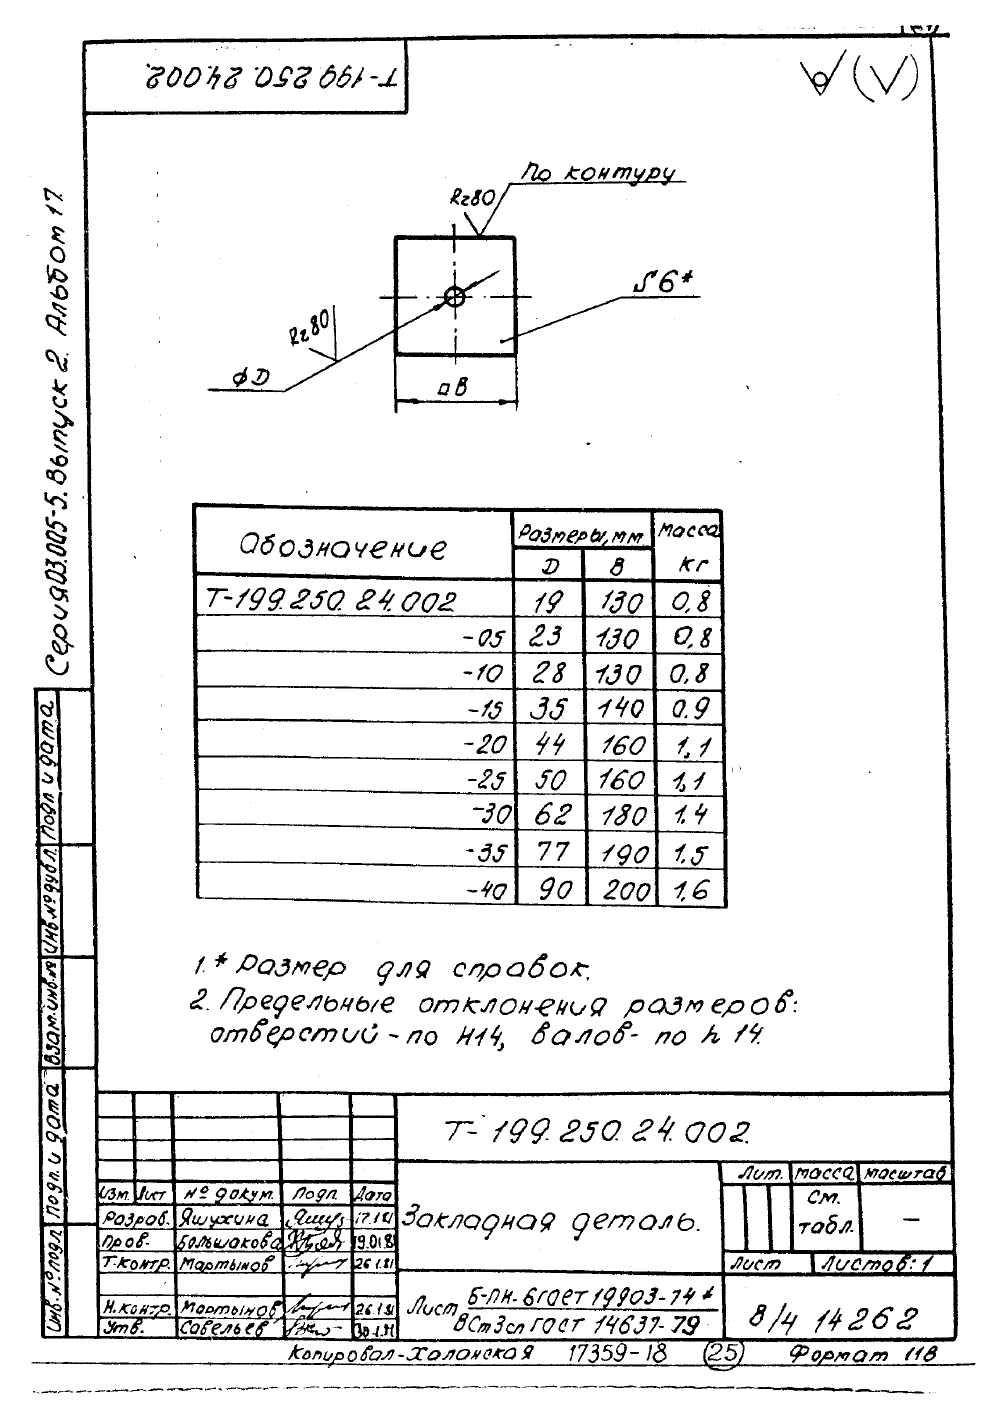 Т-199.250.24.002.
По контуру
Rz80
S6*
Rz80
⌀D
□В
Серия 03.005-5. Выпуск 2. Альбом 17.
Обозначение Размеры, мм Масса кг
D В
Т-199.250.24.002 19 130 0,8
-05 23 130 0,8
-10 28 130 0,8
-15 35 140 0.9
-20 44 160 1,1
-25 50 160 1,1
-30 62 180 1.4
-35 77 190 1.5
-40 90 200 1,6
1.* Размер для справок.
2. Предельные отклонения размеров:
отверстий - по Н14, валов - по h 14.
Подп. и дата
Инв.№ дубл.
Взам.инв.№
Подп. и дата
Инв.№ подл.
Т-199.250.24.002.
Изм. Лист № докум. Подп. Дата
Разраб. Яшухина 17.1.81
Пров. Большакова 19.01.81
Т.контр. Мартынов 26.1.81
Н.контр. Мартынов 26.1.81
Утв. Савельев 30.1.81
Закладная деталь.
Лит. Масса Масштаб
См. табл. —
Лист Листов: 1
Лист Б-ПН-6 ГОСТ 19903-74*
ВСт3сп ГОСТ 14637-79
8/4 14262
Копировал-Халанская 17359-18 25 Формат 11В